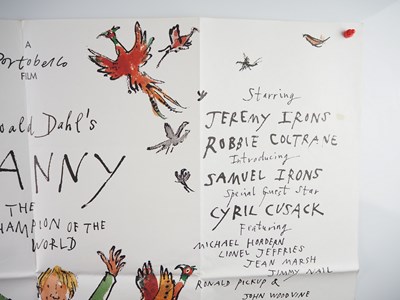 A
Portobello
FILM
oald Dahl's
ANNY
THE
CHAMPION OF THE
WORLD
Starring
JEREMY IRONS
ROBBIE COLTRANE
Introducing
SAMUEL IRONS
Special Guest Star
CYRIL CUSACK
Featuring
MICHAEL HORDERN
LIONEL JEFFRIES
JEAN MARSH
JIMMY NAIL
RONALD PICKUP &
JOHN WOODVINE